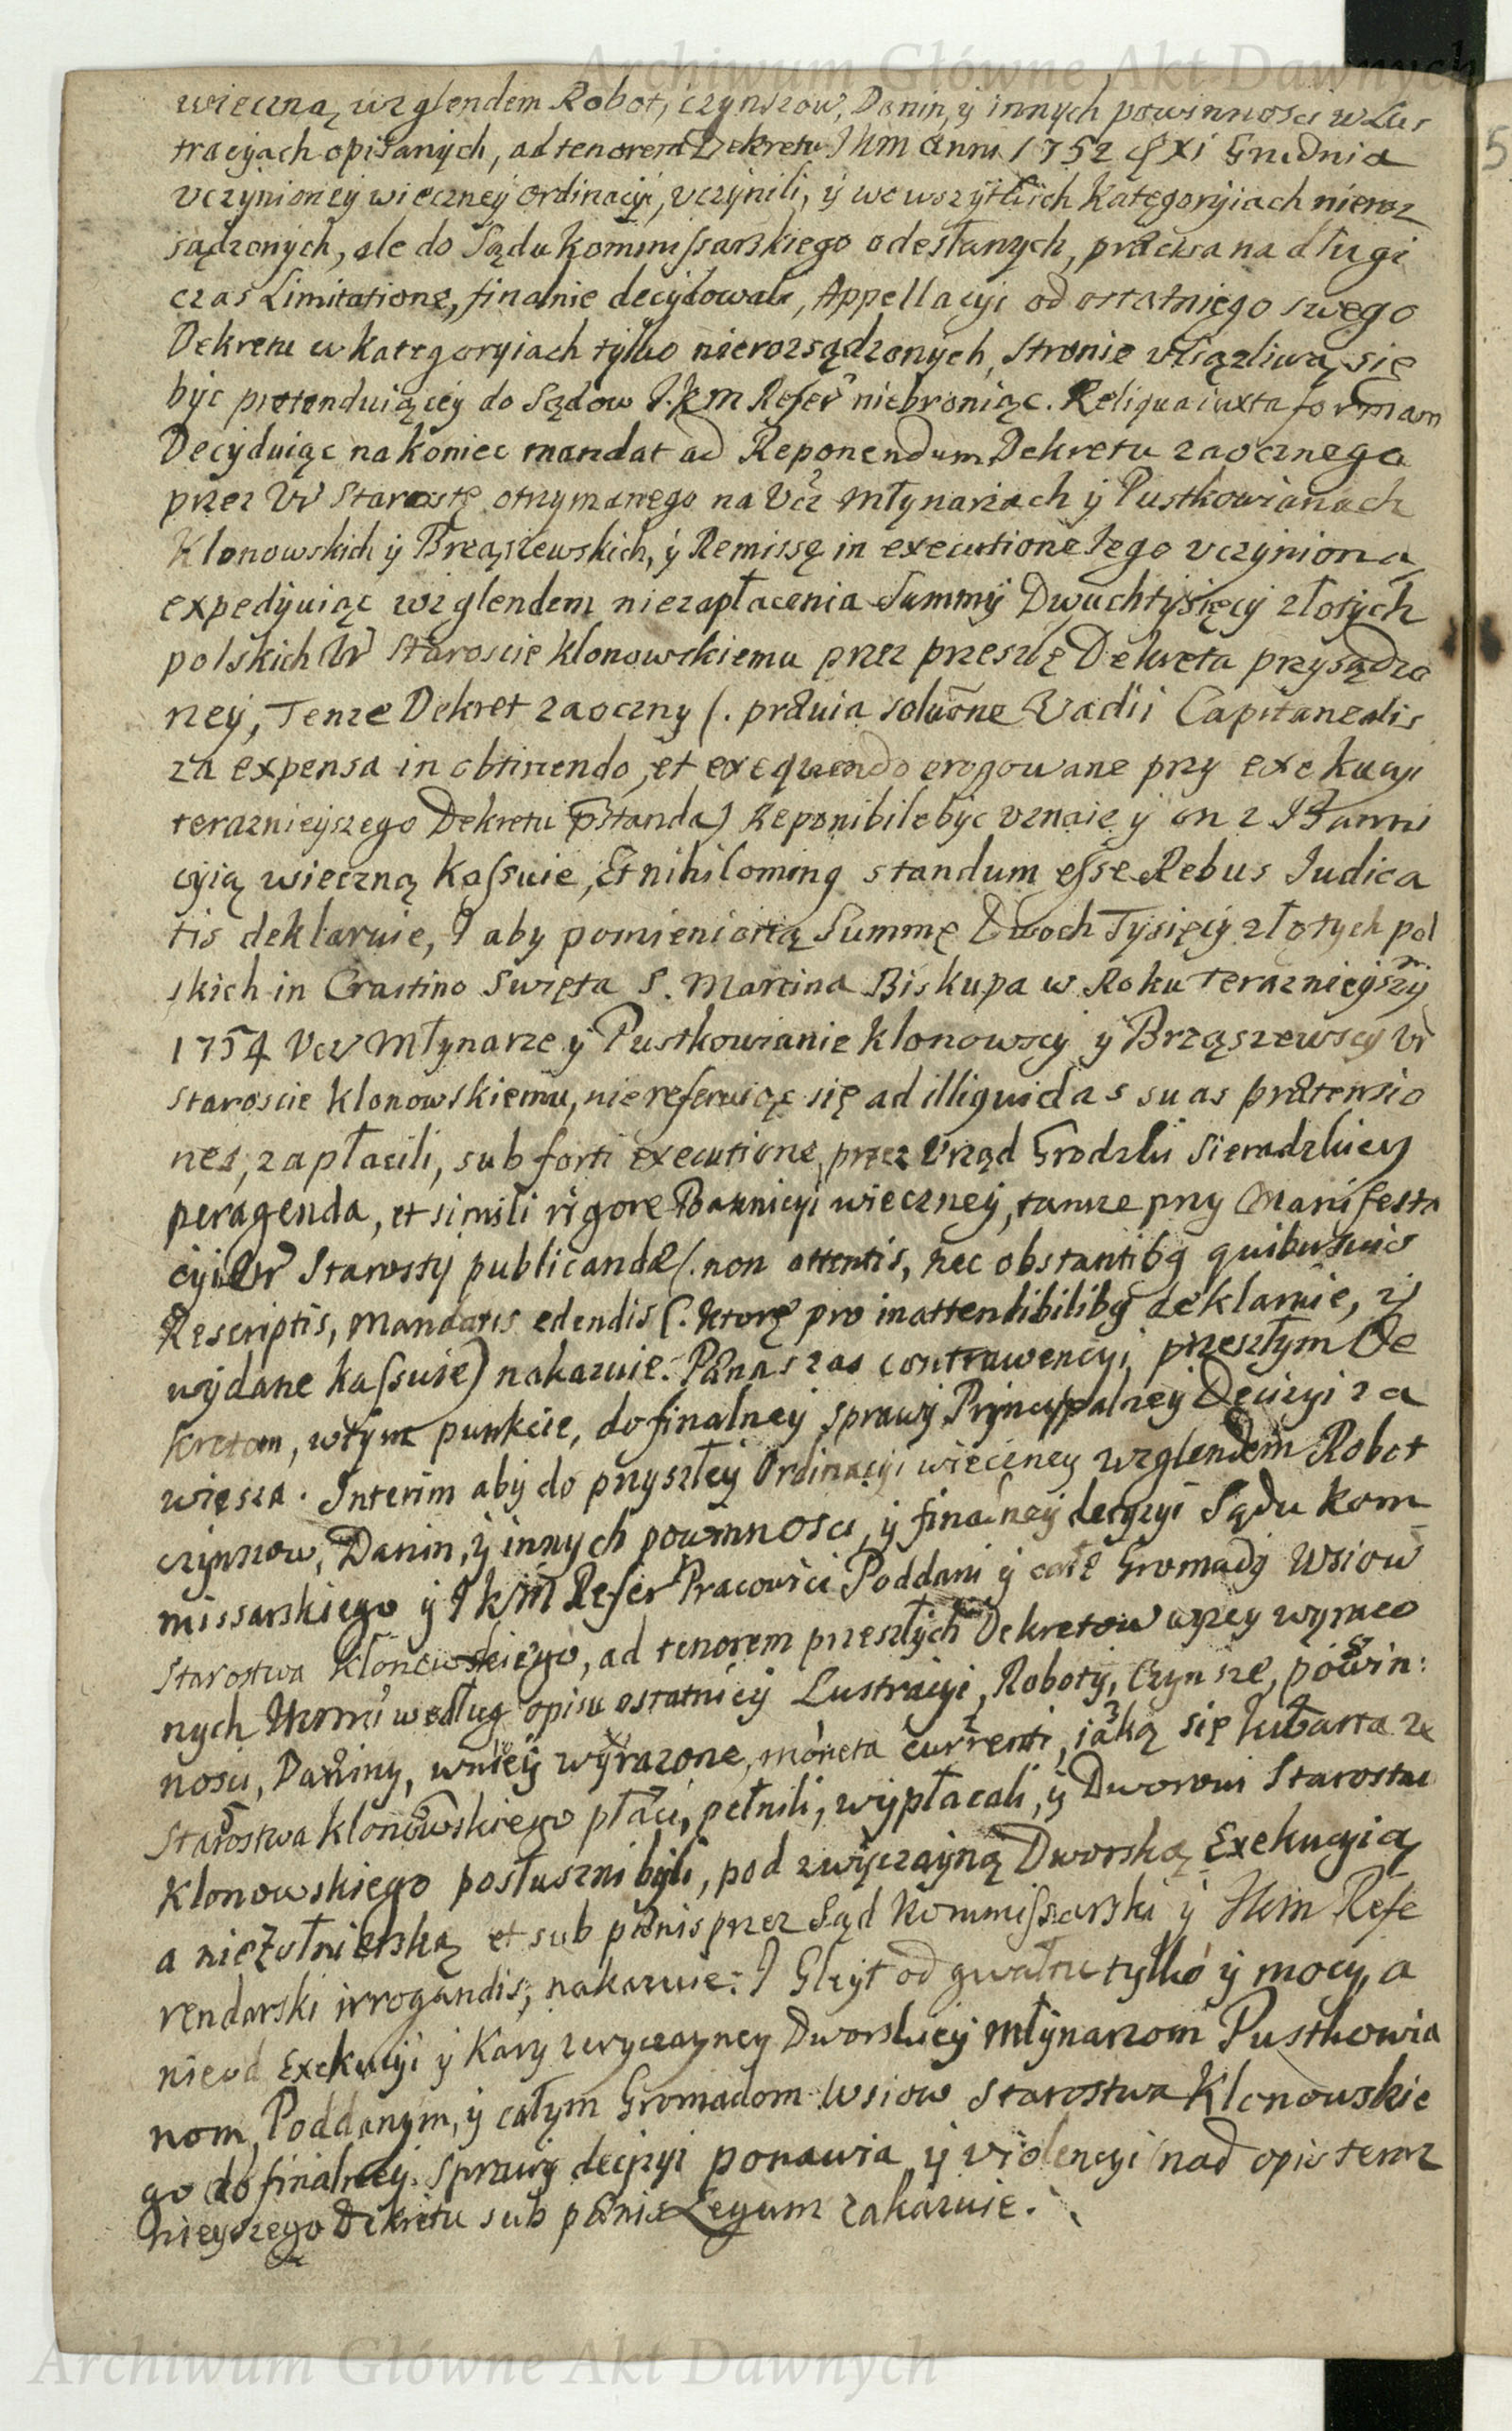 Archiwum Główne Akt Dawnych
wieczną wzglendem Robot, czynszow, Danin, y innych powinnosci w Lus
tracyjach opisanych, ad tenorem Dekretu JKM Anni 1752 XI Grudnia
vczynioney wieczney ordinacyi, vczynili, y we wszytkich Kategoryiach nieroz
sądzonych, ale do Sądu Kommissarskiego odesłanych, præcisa na długi
czas Limitatione, finalnie decydowali, Appellacyi od ostatniego swego
Dekretu w kategoryiach tylko nierozsądzonych, Stronie vciązliwą się
byc pretenduiącey do Sądow J.K.M Refer niebroniąc. Reliqua iuxta formam
Decyduiąc na koniec mandat ad Reponendum Dekretu zaocznego
przez Ur Starostę otrzymanego na Ucz Młynarzach y Pustkowianach
Klonowskich y Brząszewskich, y Remissę in executione Jego vczynioną
expedyuiąc wzglendem niezapłacenia Summy Dwuchtysięcy złotych
polskich Ur Staroscie Klonowskiemu przez przeszłe Dekreta przysądzo
ney, Tenze Dekret zaoczny (. prævia solutõne Vadii Capitanealis
za expensa in obtinendo, et exequendo erogowane przy exekucyi
teraznieyszego Dekretu præstanda) Reponibile byc vznaie y on z Banni
cyią wieczną kassuie, Et nihilominq standum esse Rebus Judica
tis deklaruie, I aby pomienioną Summę Dwoch Tysięcy złotych pol
skich in Crastino Swięta S. Marcina Biskupa w Roku Teraznieyszỹ
1754 Ucz Młynarze y Pustkowianie Klonowscy y Brząszewscy Ur
Staroscie Klonowskiemu, niereferuiąc się ad illiquidas suas prætensio
nes, zapłacili, sub forti executione, przez Urząd Grodzki Sieradzkiey
peragenda, et simili rigore Bannicyi wieczney, tamze przy Manifesta
cyi Ur Starosty publicandæ (. non attentis, nec obstantibq quibusuis
Rescriptis, Mandatis edendis (. ktore pro inattendibilibq deklaruie, y
wydane kassuie) nakazuie: Pænas zas contrawencyi przeszłym De
kretom, w tym punkcie, do finalney sprawy Pryncypalney Decyzyi za
wiesza. Interim aby do przyszłey Ordinacyi wieczney wzglendem Robot
czynszow, Danin, y innych powinnosci, y finalney decyzyi Sądu Kom
missarskiego y JKM Refer Pracowici Poddani y całe Gromady Wsiow
Starostwa Klonowskiego, ad tenorem przeszłych Dekretow wyzey wymeo
nych według opisu ostatniey Lustracyi, Roboty, Czynsze, powin:
nosci, Daniny, w niey wyrazone, moneta currenti, jaką się kwarta ze
Starostwa Klonowskiego płaci, pełnili, wypłacali, y Dworowi Starostwa
Klonowskiego posłuszni byli, pod zwyczayną Dworską Exekucyią
a nie Zołnierską et sub pænis przez Sąd Kommissarski y JKM Refe
rendarski irrogandis, nakazuie: I Gleyt od gwałtu tylko y mocy, a
nie od Exekucyi y Kary zwyczayney Dworskiey Młynarzom Pustkowia
nom, Poddanym, y całym Gromadom Wsiow Starostwa Klonowskie
go do finalney sprawy decyzyi ponawia y violencyi nad opis teraz
nieyszego Dekretu sub pænis Legum zakazuie.
Archiwum Główne Akt Dawnych